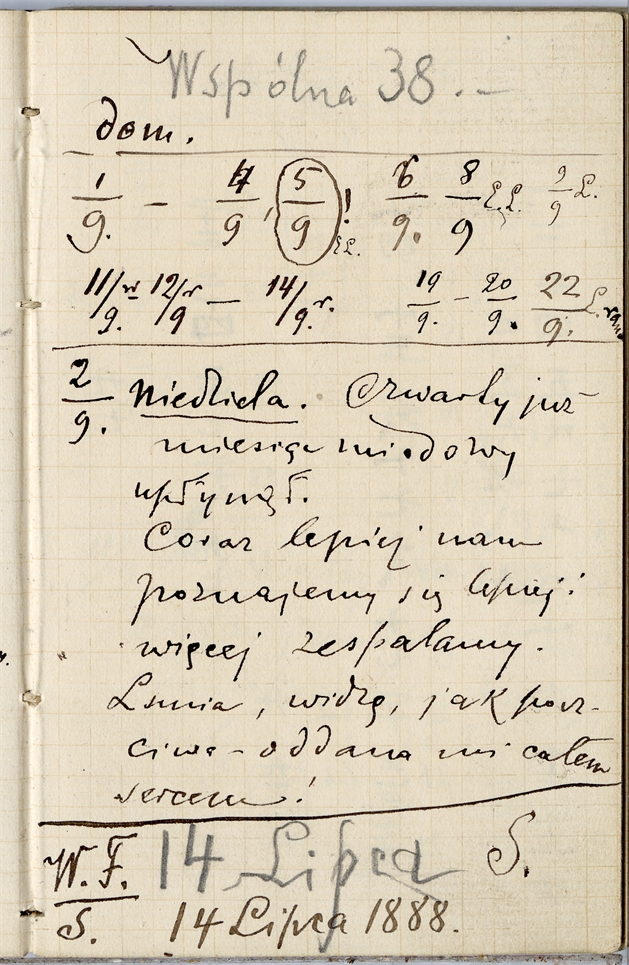 Wspólna 38. –
dom.
1/9. – 4/9, 5/9! 6/9. 8/9 9/9 L.
11/9. 12/9 – 14/9. r. 19/9. – 20/9. 22/9.
2/9. Niedziela. Czwarty już
miesiąc miodowy
upłynął.
Coraz lepiej nam
poznajemy się lepiej i
więcej zespalamy.
Lunia, widzę, jak pocz-
ciwa – oddana mi całem
sercem!
W. F. 14 Lipca S.
S. 14 Lipca 1888.